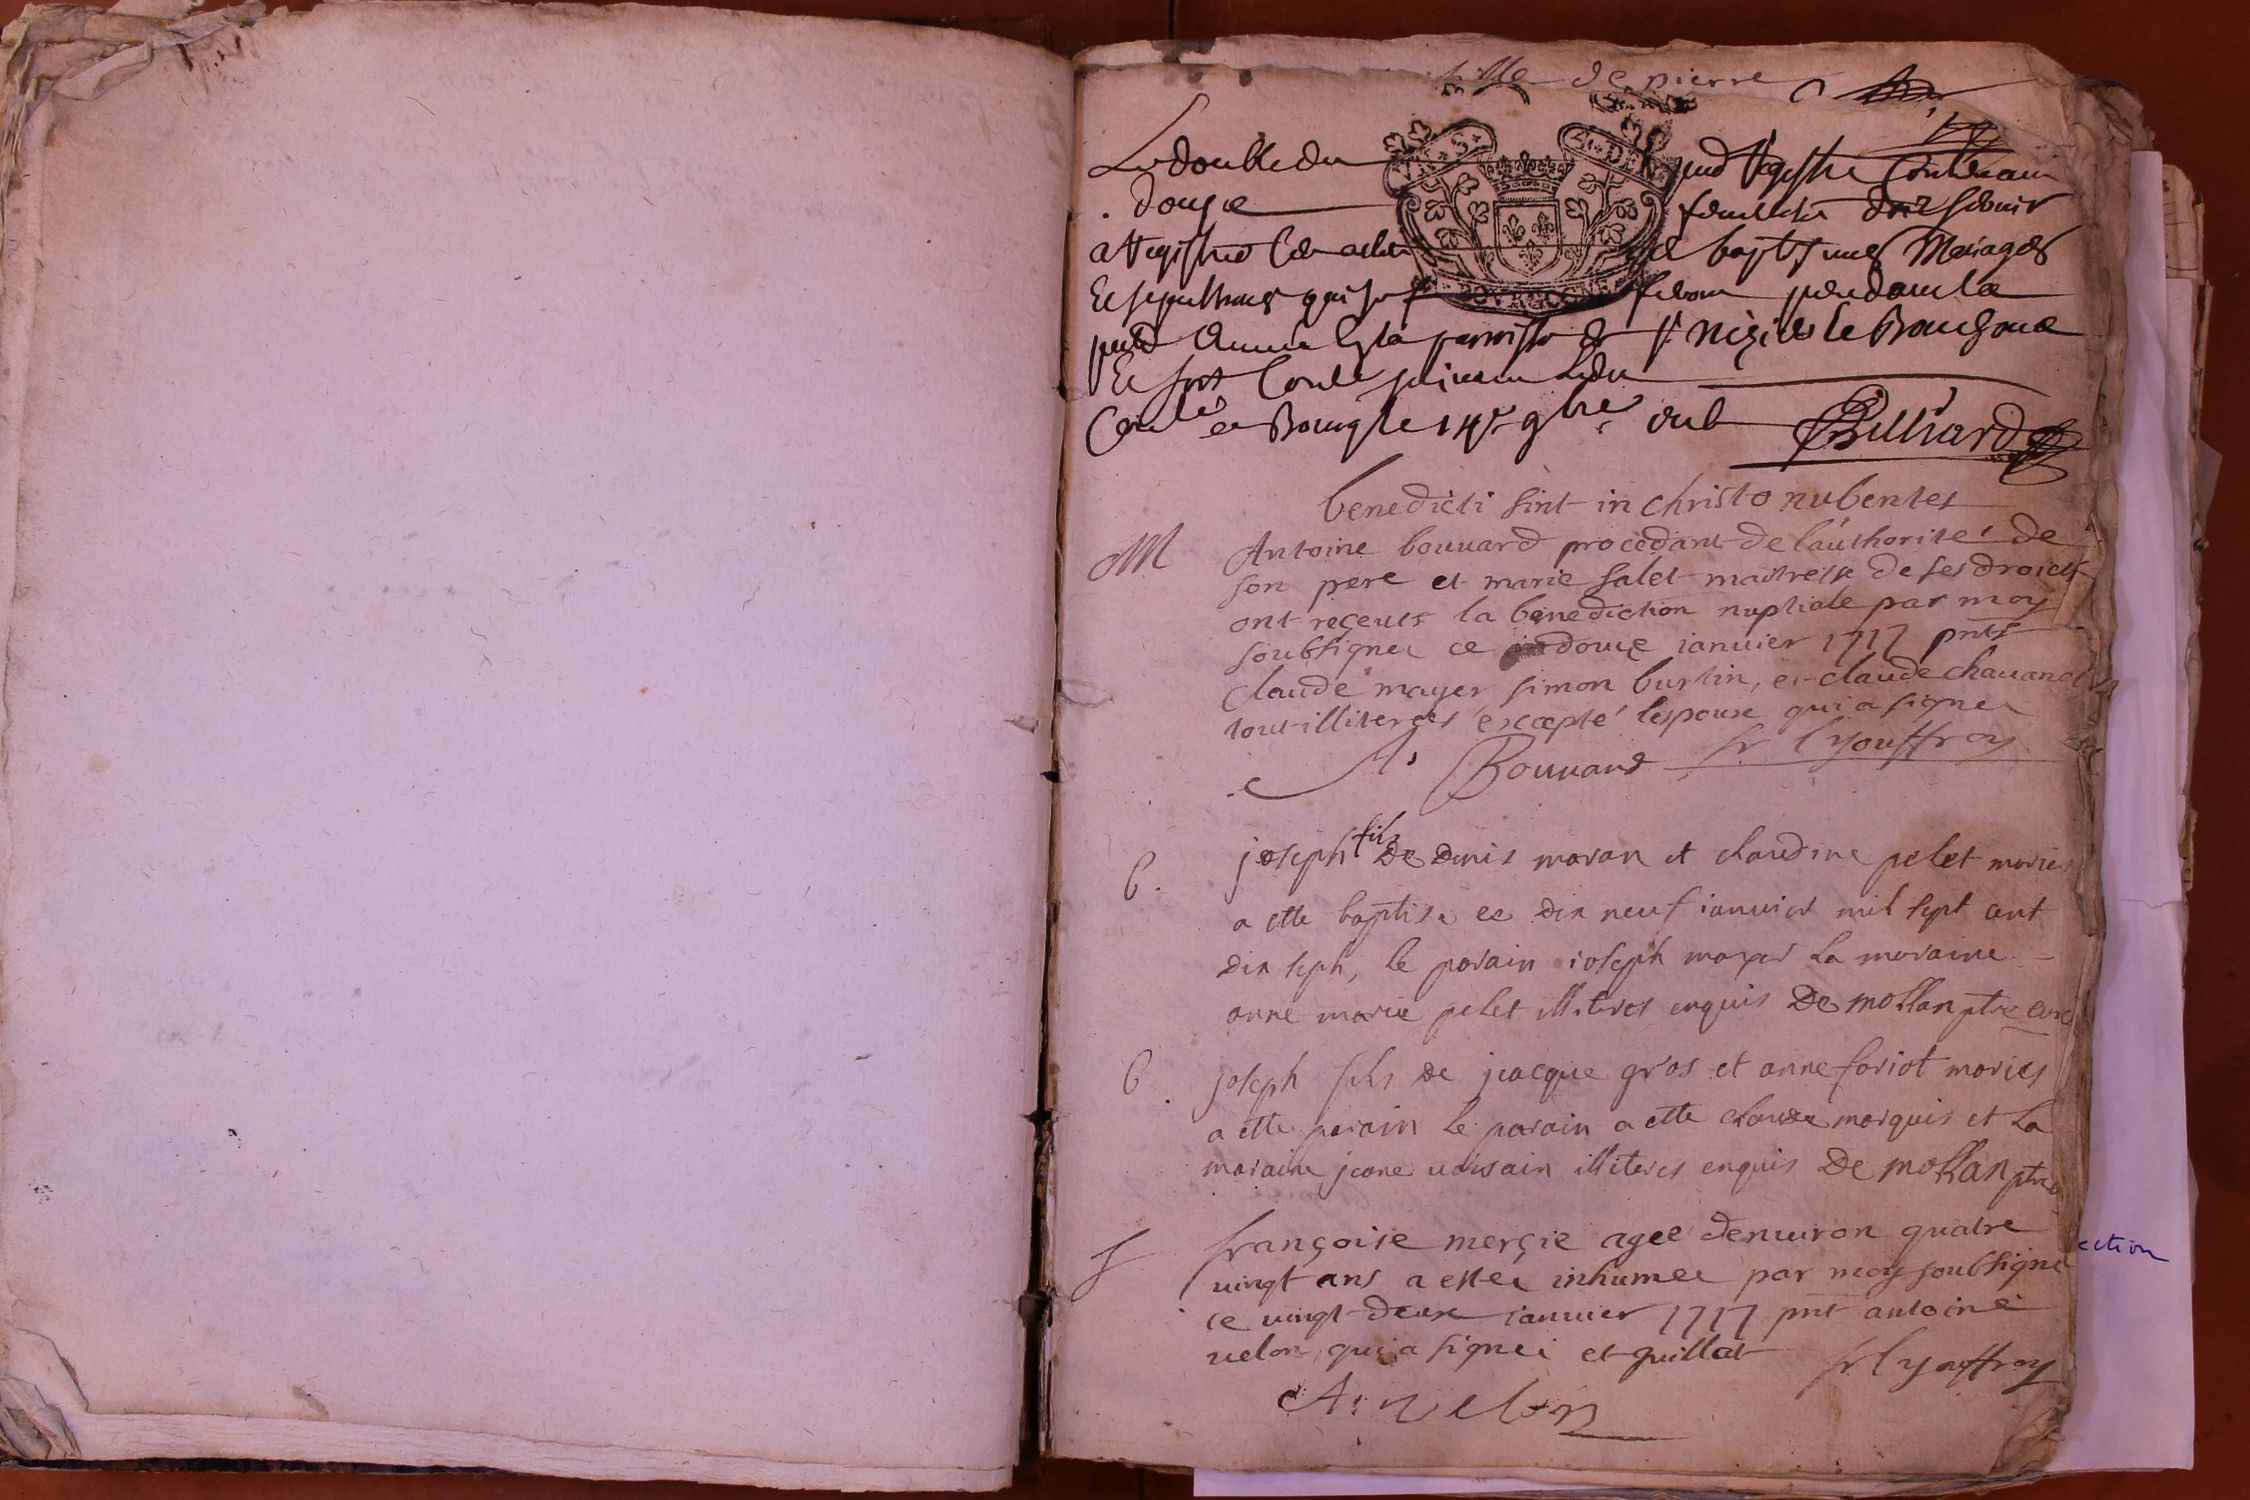 fille de pierre
Le double du pnd Registre Contenant
douze feuillets doit servir
a Registrer les actes de baptesmes Mariages
Et sepulthures qui se feront pendant la
pnte Année En la parroisse de st Nizier le Bouchoux
Et sera
a Bourg le 14e 9bre Billiard
VI + S + 4 + DEN
BOURGOGNE
benedicti sint in christo nubentes
M Antoine bouuard procedant de l'authorité de
son pere et marie salet maitresse de ses droicts
ont reçeues la benediction nuptiale par moy
soubsigner ce douze ianuier 1717 pnts
Claude mayer simon burtin, et claude chauanot
tout illiterges éxcepté l'espoux qui a signer
Bouuard fr lyouffroy
b. joseph fils de denis moran et claudine pelet mariés
a ette baptise ce dix neuf ianvier mil sept cent
dix seph, le parain ioseph mayer la maraine
anne marie pelet illiteres enquis De mollan ptre curé
b. joseph fils de jacque gros et anne foriot mariés
a ette parain le parain a ette claude marquis et la
maraine jeane uoisain illiteres enquis De mollan ptre
S françoise merçie agee denuiron quatre
uingt ans a estéé inhumee par moy soubsigné
ce uingt-deux ianuier 1717 pnt antoine
uelon, qui a signéé et guillat fr lyouffroy
A uelon
ection